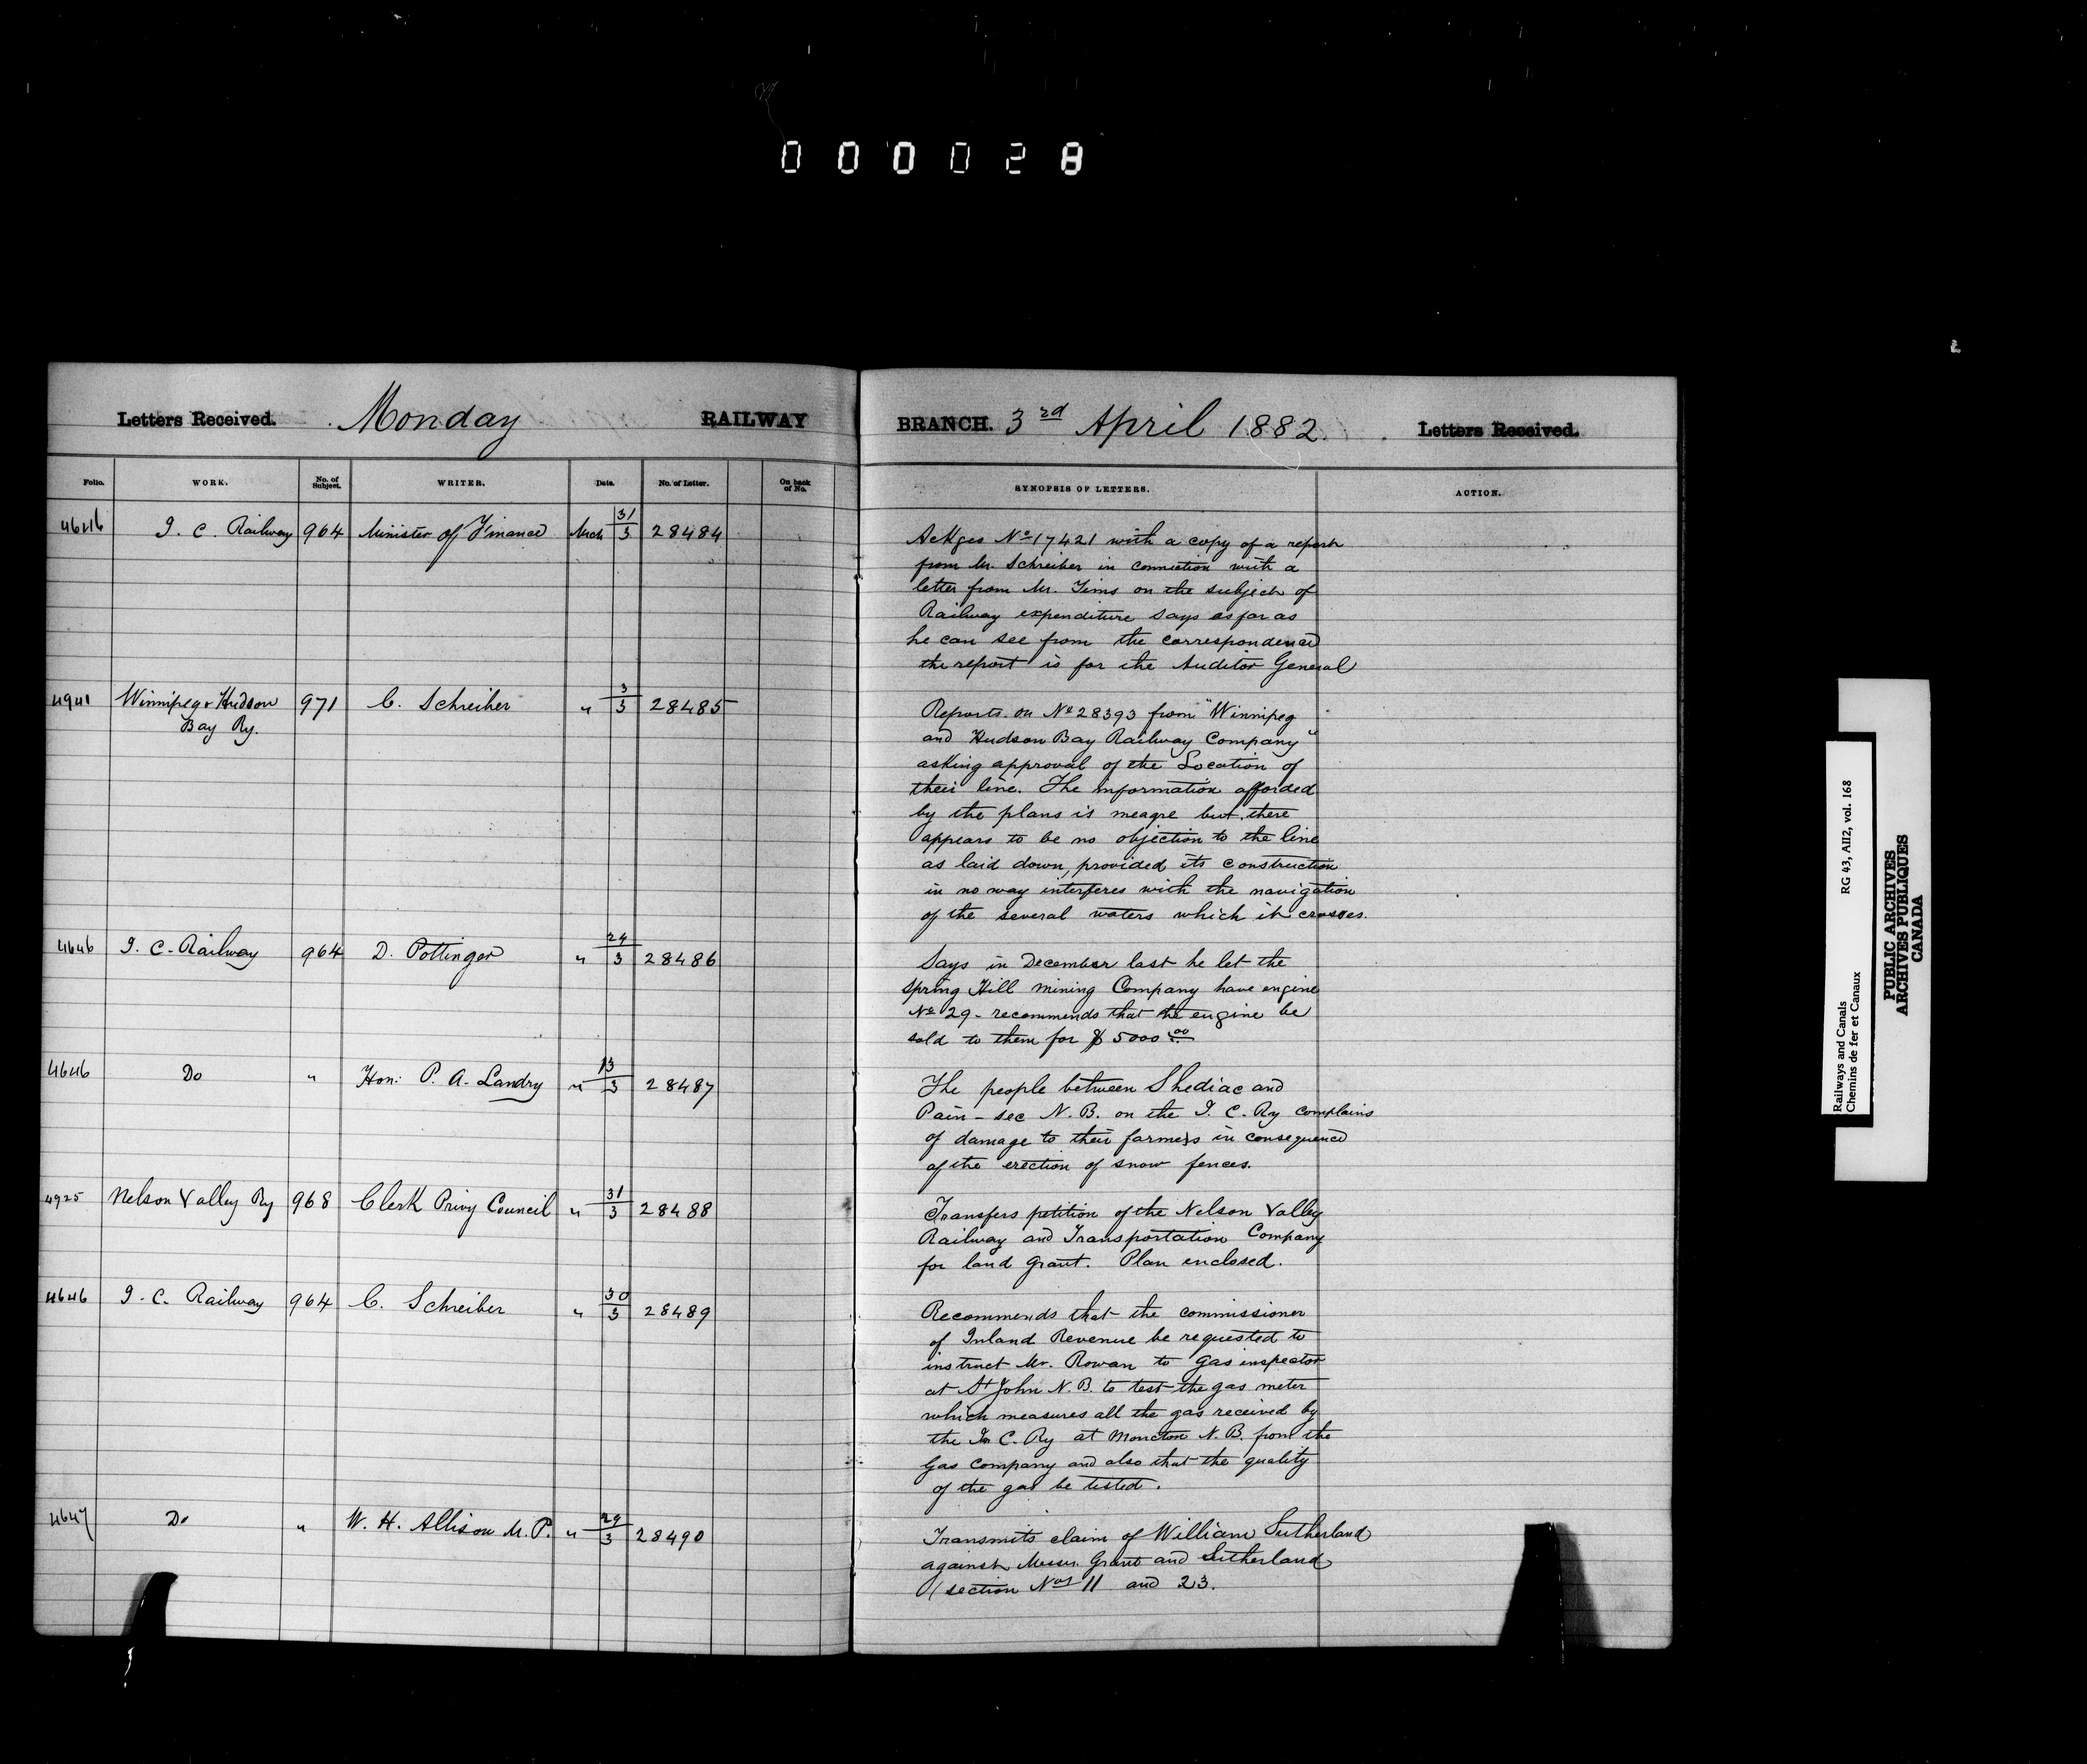 000028
Letters Received. Monday RAILWAY BRANCH. 3rd April 1882. Letters Received.
Folio. WORK. No. of Subject. WRITER. Date. No. of Letter. On back of No. SYNOPSIS OF LETTERS. ACTION.
4646 I. C. Railway 964 Minister of Finance Mch 31/3 28484
Ackges No 17421 with a copy of a report
from Mr. Schreiber in connection with a
letter from Mr. Tims on the subject of
Railway expenditure says as far as
he can see from the correspondence
the report is for the Auditor General
4941 Winnipeg & Hudson 971 C. Schreiber " 3/3 28485
Bay Ry.
Reports on No 28393 from "Winnipeg
and Hudson Bay Railway Company"
asking approval of the Location of
their line. The information afforded
by the plans is meagre but there
appears to be no objection to the line
as laid down, provided its construction
in no way interferes with the navigation
of the several waters which it crosses.
4646 I. C. Railway 964 D. Pottinger " 29/3 28486
Says in December last he let the
Spring Hill Mining Company have engine
No 29 - recommends that the engine be
sold to them for $5000.00
4646 Do " Hon: P. A. Landry " 13/3 28487
The people between Shediac and
Pain-sec N.B. on the I. C. Ry complains
of damage to their farmers in consequence
of the erection of snow fences.
4925 Nelson Valley Ry 968 Clerk Privy Council " 31/3 28488
Transfers petition of the Nelson Valley
Railway and Transportation Company
for land grant. Plan enclosed.
4646 I. C. Railway 964 C. Schreiber " 30/3 28489
Recommends that the commissioner
of Inland Revenue be requested to
instruct Mr. Rowan to gas inspector
at St John N.B. to test the gas meter
which measures all the gas received by
the In C. Ry at Moncton N.B. from the
Gas Company and also that the quality
of the gas be tested.
4647 Do " W. H. Allison M.P. " 29/3 28490
Transmits claim of William Sutherland
against Messrs. Grant and Sutherland
(section Nos 11 and 23.
Railways and Canals RG 43, AII2, vol. 168
Chemins de fer et Canaux
PUBLIC ARCHIVES
ARCHIVES PUBLIQUES
CANADA